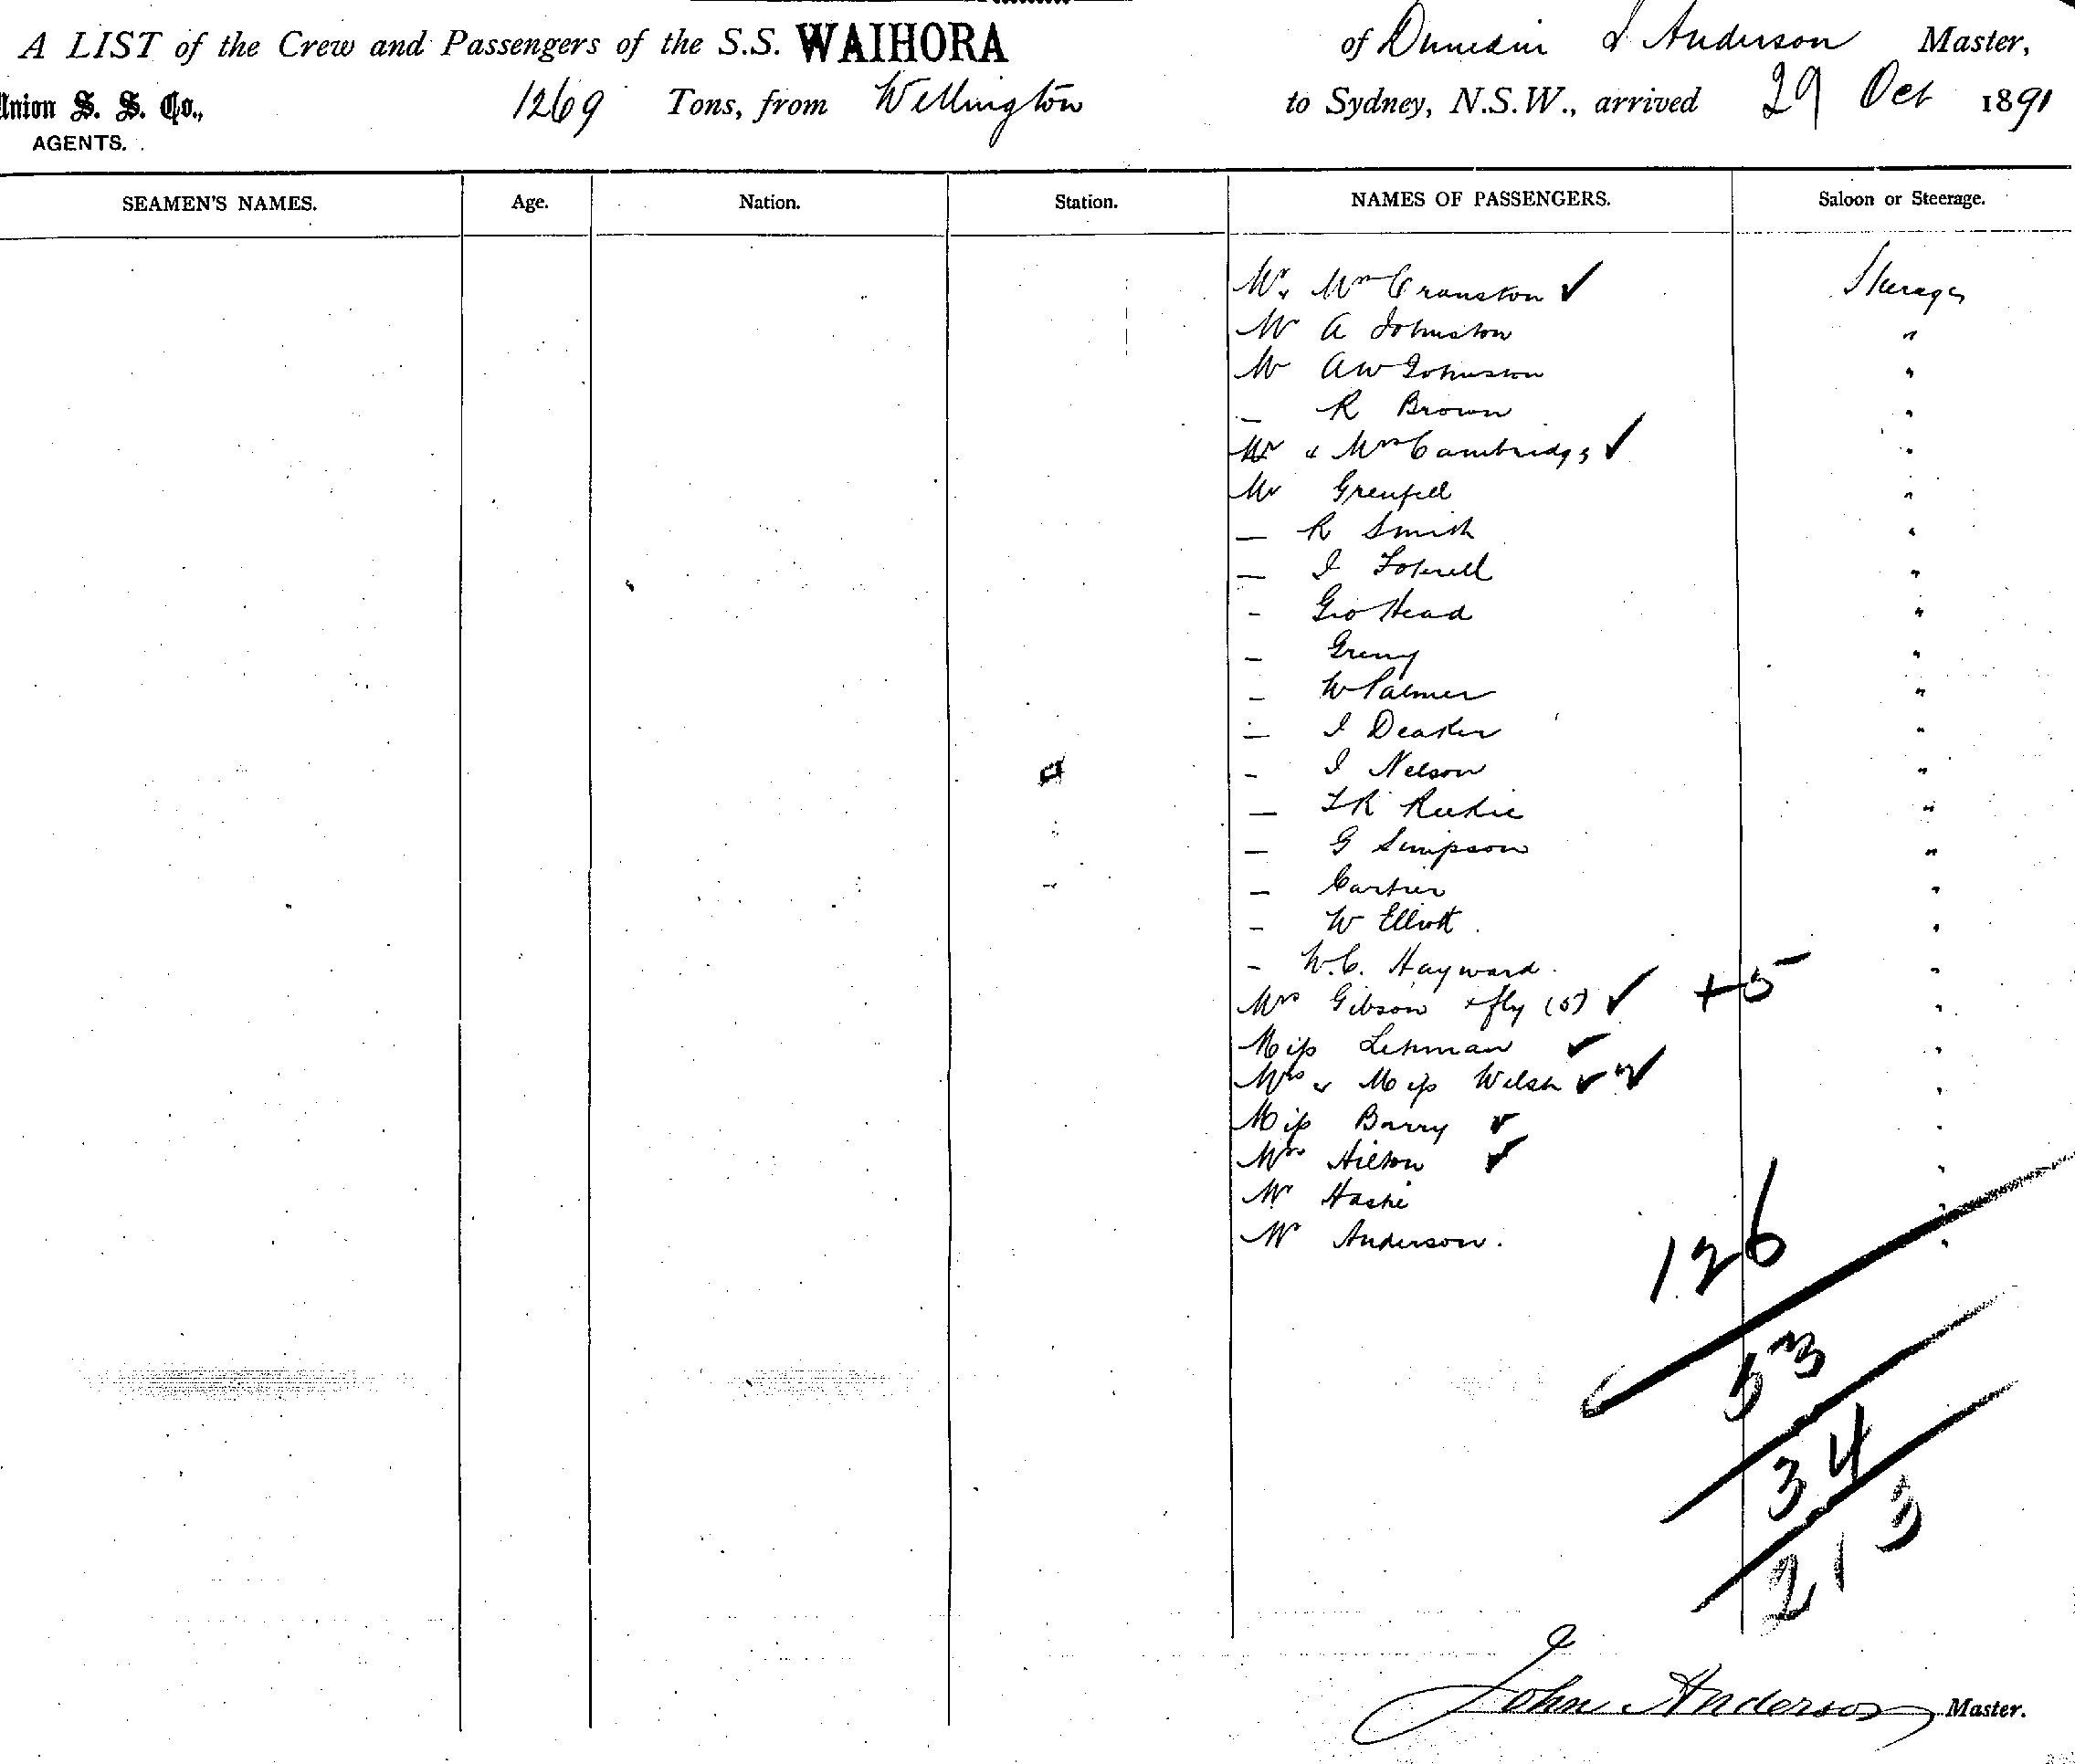 A LIST of the Crew and Passengers of the S.S. WAIHORA of Dunedin J Anderson Master,
Union S. S. Co., 1269 Tons, from Wellington to Sydney, N.S.W., arrived 29 Oct 1891
AGENTS.
SEAMEN'S NAMES. Age. Nation. Station. NAMES OF PASSENGERS. Saloon or Steerage.
Mr & Mrs Cranston ✓ Steerage
Mr A Johnston "
Mr AW Johnston "
— R Brown "
Mr & Mrs Cambridge ✓ "
Mr Grenfell "
— R Smith "
— J "
- Geo Head "
— "
— W Palmer "
— J Deaker "
- J Nelson "
— "
— G Simpson "
— "
- W Elliott "
- W.C. Hayward "
Mrs Gibson & fly (5) ✓ +5 "
Miss Lehman ✓ "
Mrs & Miss Welsh ✓ ✓ "
Miss Barry ✓ "
Mrs Hilton ✓ "
Mr "
Mr Anderson. "
126
53
34
213
John Anderson Master.